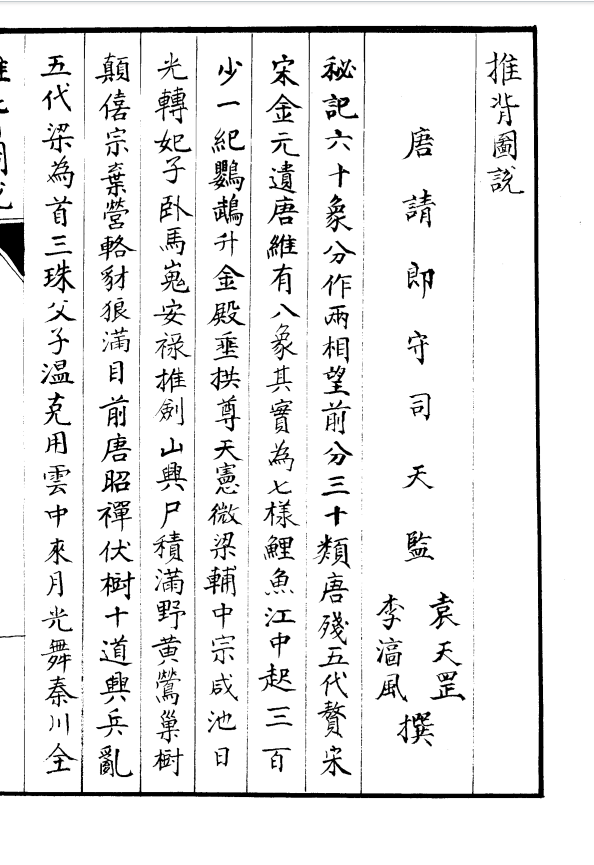 推背圖說
唐請郎守司天監
袁天罡
李淳風
撰
秘記六十象分作兩相望前分三十類唐殘五代贅宋
宋金元遺唐維有八象其實為七樣鯉魚江中起三百
少一紀鸚鵡升金殿垂拱尊天憲微梁輔中宗咸池日
光轉妃子臥馬嵬安祿推劍山興尸積滿野黃鶯巢樹
顛僖宗棄營輅豺狼滿目前唐昭禪伏樹十道興兵亂
五代梁為首三珠父子溫克用雲中來月光舞秦川全